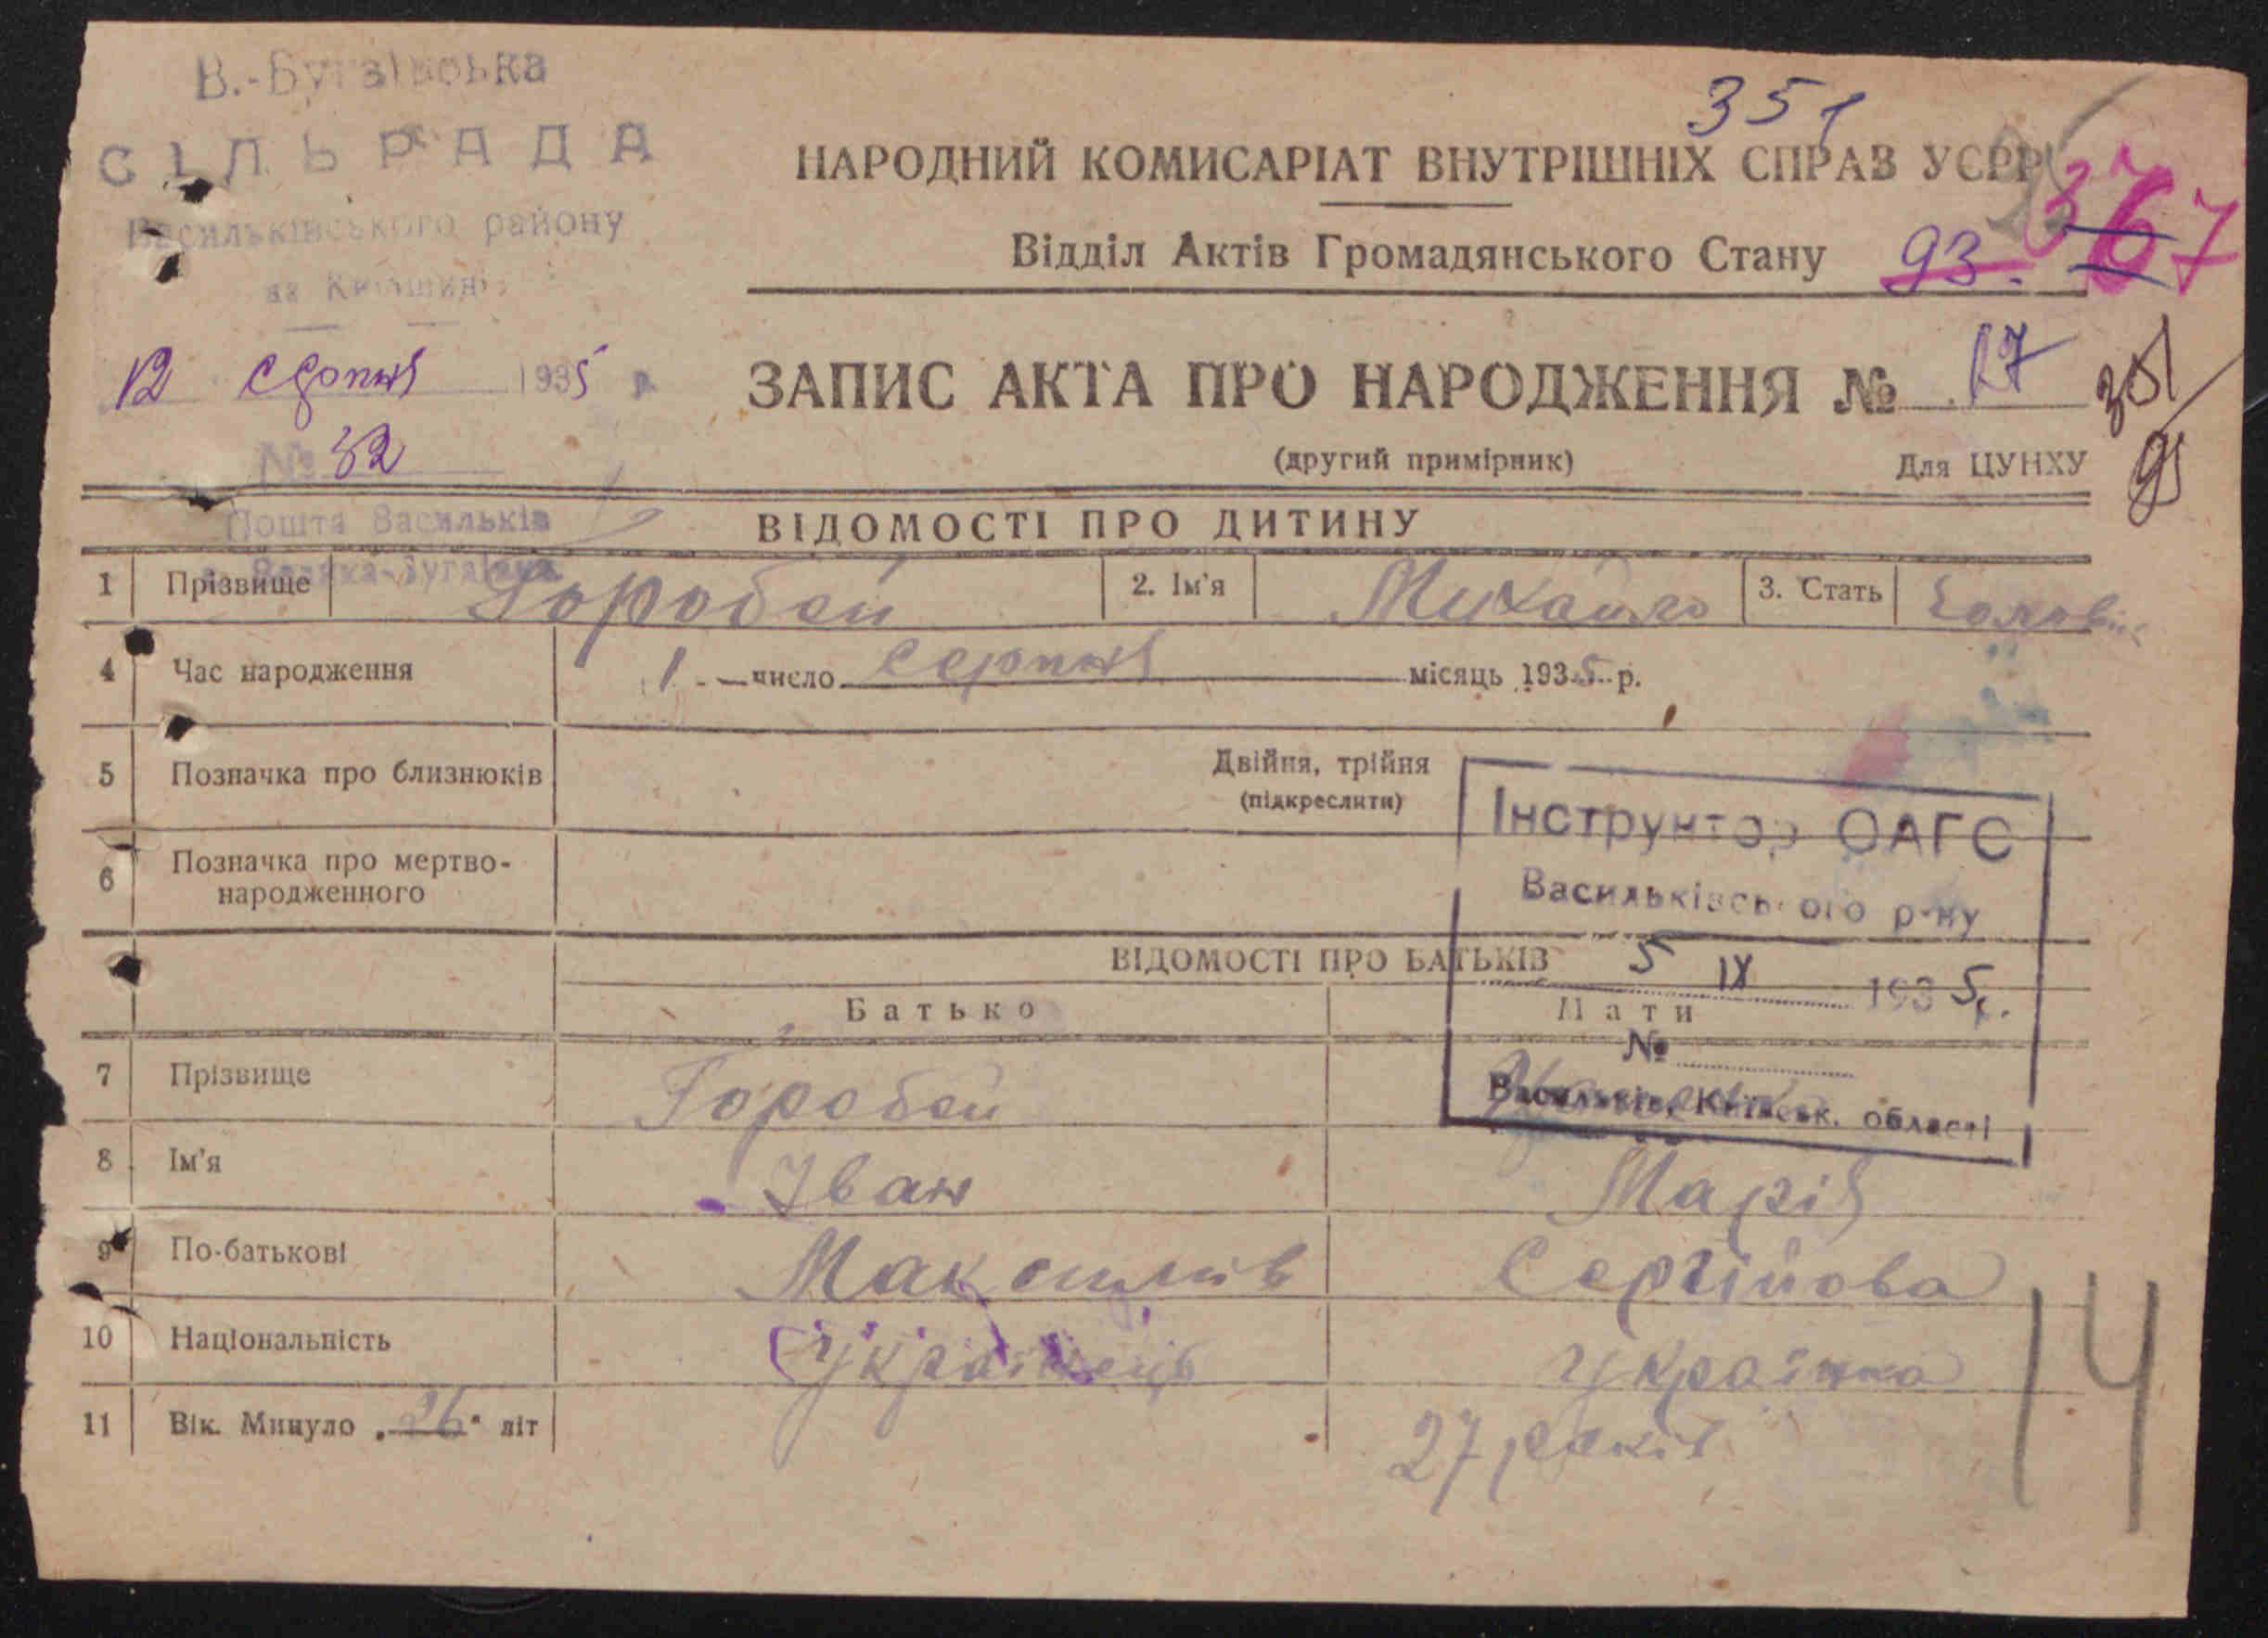 В.-Бугаївська
СІЛЬРАДА
Васильківського району
на Київщині
12 серпня 1935 р.
№ 32
Пошта Васильків
351
НАРОДНИЙ КОМИСАРІАТ ВНУТРІШНІХ СПРАВ УСРР
Відділ Актів Громадянського Стану 93. 367
ЗАПИС АКТА ПРО НАРОДЖЕННЯ № 17
351
95
(другий примірник) Для ЦУНХУ
ВІДОМОСТІ ПРО ДИТИНУ
1 Прізвище Горобей 2. Ім'я Михайло 3. Стать
4 Час народження 1 число серпня місяць 1935 р.
5 Позначка про близнюків Двійня, трійня
(підкреслити)
6 Позначка про мертво-
народженного
Інструктор ОАГС
Васильківського р-ну
5 IX 1935 р.
№
Васильків, Київськ. області
ВІДОМОСТІ ПРО БАТЬКІВ
Батько Мати
7 Прізвище Горобей
8 Ім'я Іван Марія
9 По-батькові Максимів Сергійова
10 Національність Українець Українка
11 Вік. Минуло „26" літ 27 років
14